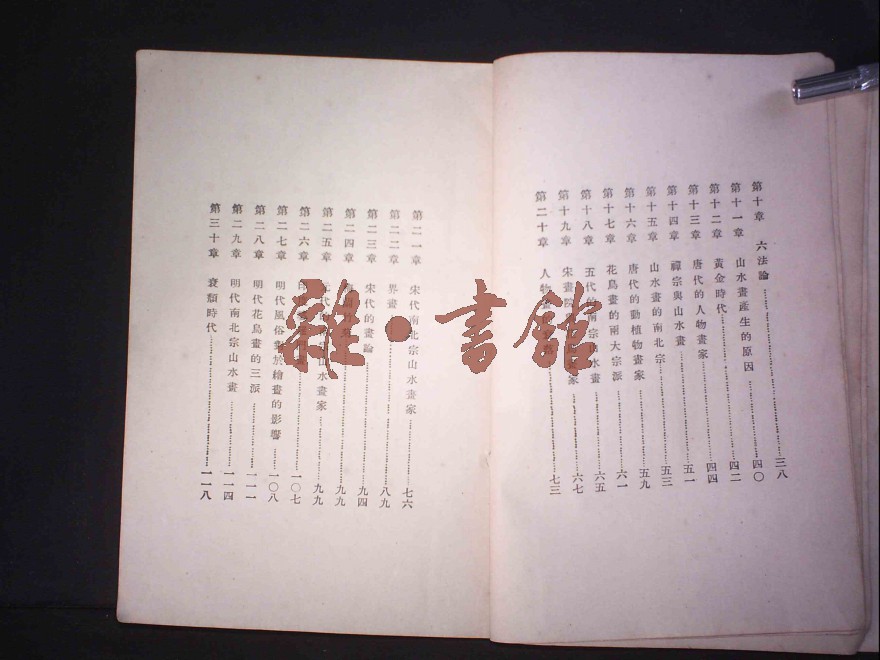 第十章 六法論 三八
第十一章 山水畫產生的原因 四〇
第十二章 黃金時代 四二
第十三章 唐代的人物畫家 四四
第十四章 禪宗與山水畫 五一
第十五章 山水畫的南北宗 五三
第十六章 唐代的動植物畫家 五九
第十七章 花鳥畫的兩大宗派 六一
第十八章 五代的南宗山水畫 六五
第十九章 宋畫院 家 六七
第二十章 人物畫 七三
第二一章 宋代南北宗山水畫家 七六
第二二章 界畫 八九
第二三章 宋代的畫論 九四
第二四章 九九
第二五章 山水畫家 九九
第二六章 一〇七
第二七章 明代風俗畫於繪畫的影響 一〇八
第二八章 明代花鳥畫的三派 一一一
第二九章 明代南北宗山水畫 一一四
第三十章 衰頹時代 一一八
雜·書館